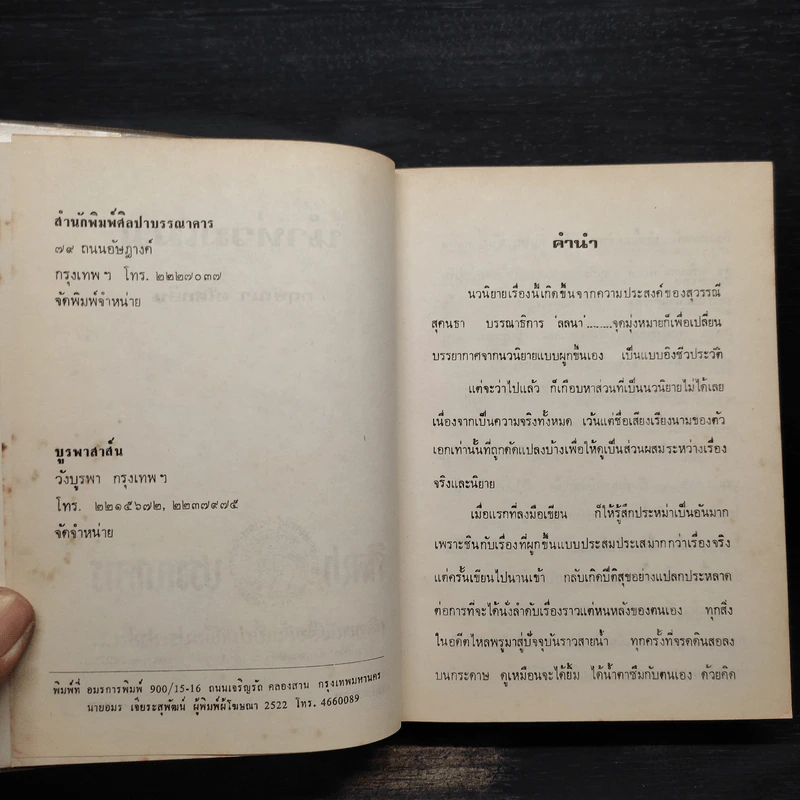 สำนักพิมพ์ศิลปาบรรณาคาร
๗๙ ถนนอัษฎางค์
กรุงเทพฯ โทร. ๒๒๒๗๐๓๗
จัดพิมพ์จำหน่าย
บูรพาสาส์น
วังบูรพา กรุงเทพฯ
โทร. ๒๒๑๕๖๗๒, ๒๒๓๗๙๗๕
จัดจำหน่าย
พิมพ์ที่ อมรการพิมพ์ 900/15-16 ถนนเจริญรัถ คลองสาน กรุงเทพมหานคร
นายอมร เจียระสุพัฒน์ ผู้พิมพ์ผู้โฆษณา 2522 โทร. 4660089
คำนำ
นวนิยายเรื่องนี้เกิดขึ้นจากความประสงค์ของสุวรรณี
สุคนธา บรรณาธิการ 'ลลนา'........จุดมุ่งหมายก็เพื่อเปลี่ยน
บรรยากาศจากนวนิยายแบบผูกขึ้นเอง เป็นแบบอิงชีวประวัติ
แต่จะว่าไปแล้ว ก็เกือบหาส่วนที่เป็นนวนิยายไม่ได้เลย
เนื่องจากเป็นความจริงทั้งหมด เว้นแต่ชื่อเสียงเรียงนามของตัว
เอกเท่านั้นที่ถูกดัดแปลงบ้างเพื่อให้ดูเป็นส่วนผสมระหว่างเรื่อง
จริงและนิยาย
เมื่อแรกที่ลงมือเขียน ก็ให้รู้สึกประหม่าเป็นอันมาก
เพราะชินกับเรื่องที่ผูกขึ้นแบบประสมประเสมากกว่าเรื่องจริง
แต่ครั้นเขียนไปนานเข้า กลับเกิดปีติสุขอย่างแปลกประหลาด
ต่อการที่จะได้นั่งลำดับเรื่องราวแต่หนหลังของตนเอง ทุกสิ่ง
ในอดีตไหลพรูมาสู่ปัจจุบันราวสายน้ำ ทุกครั้งที่จรดดินสอลง
บนกระดาษ ดูเหมือนจะได้ยิ้ม ได้น้ำตาซึมกับตนเอง ด้วยคิด